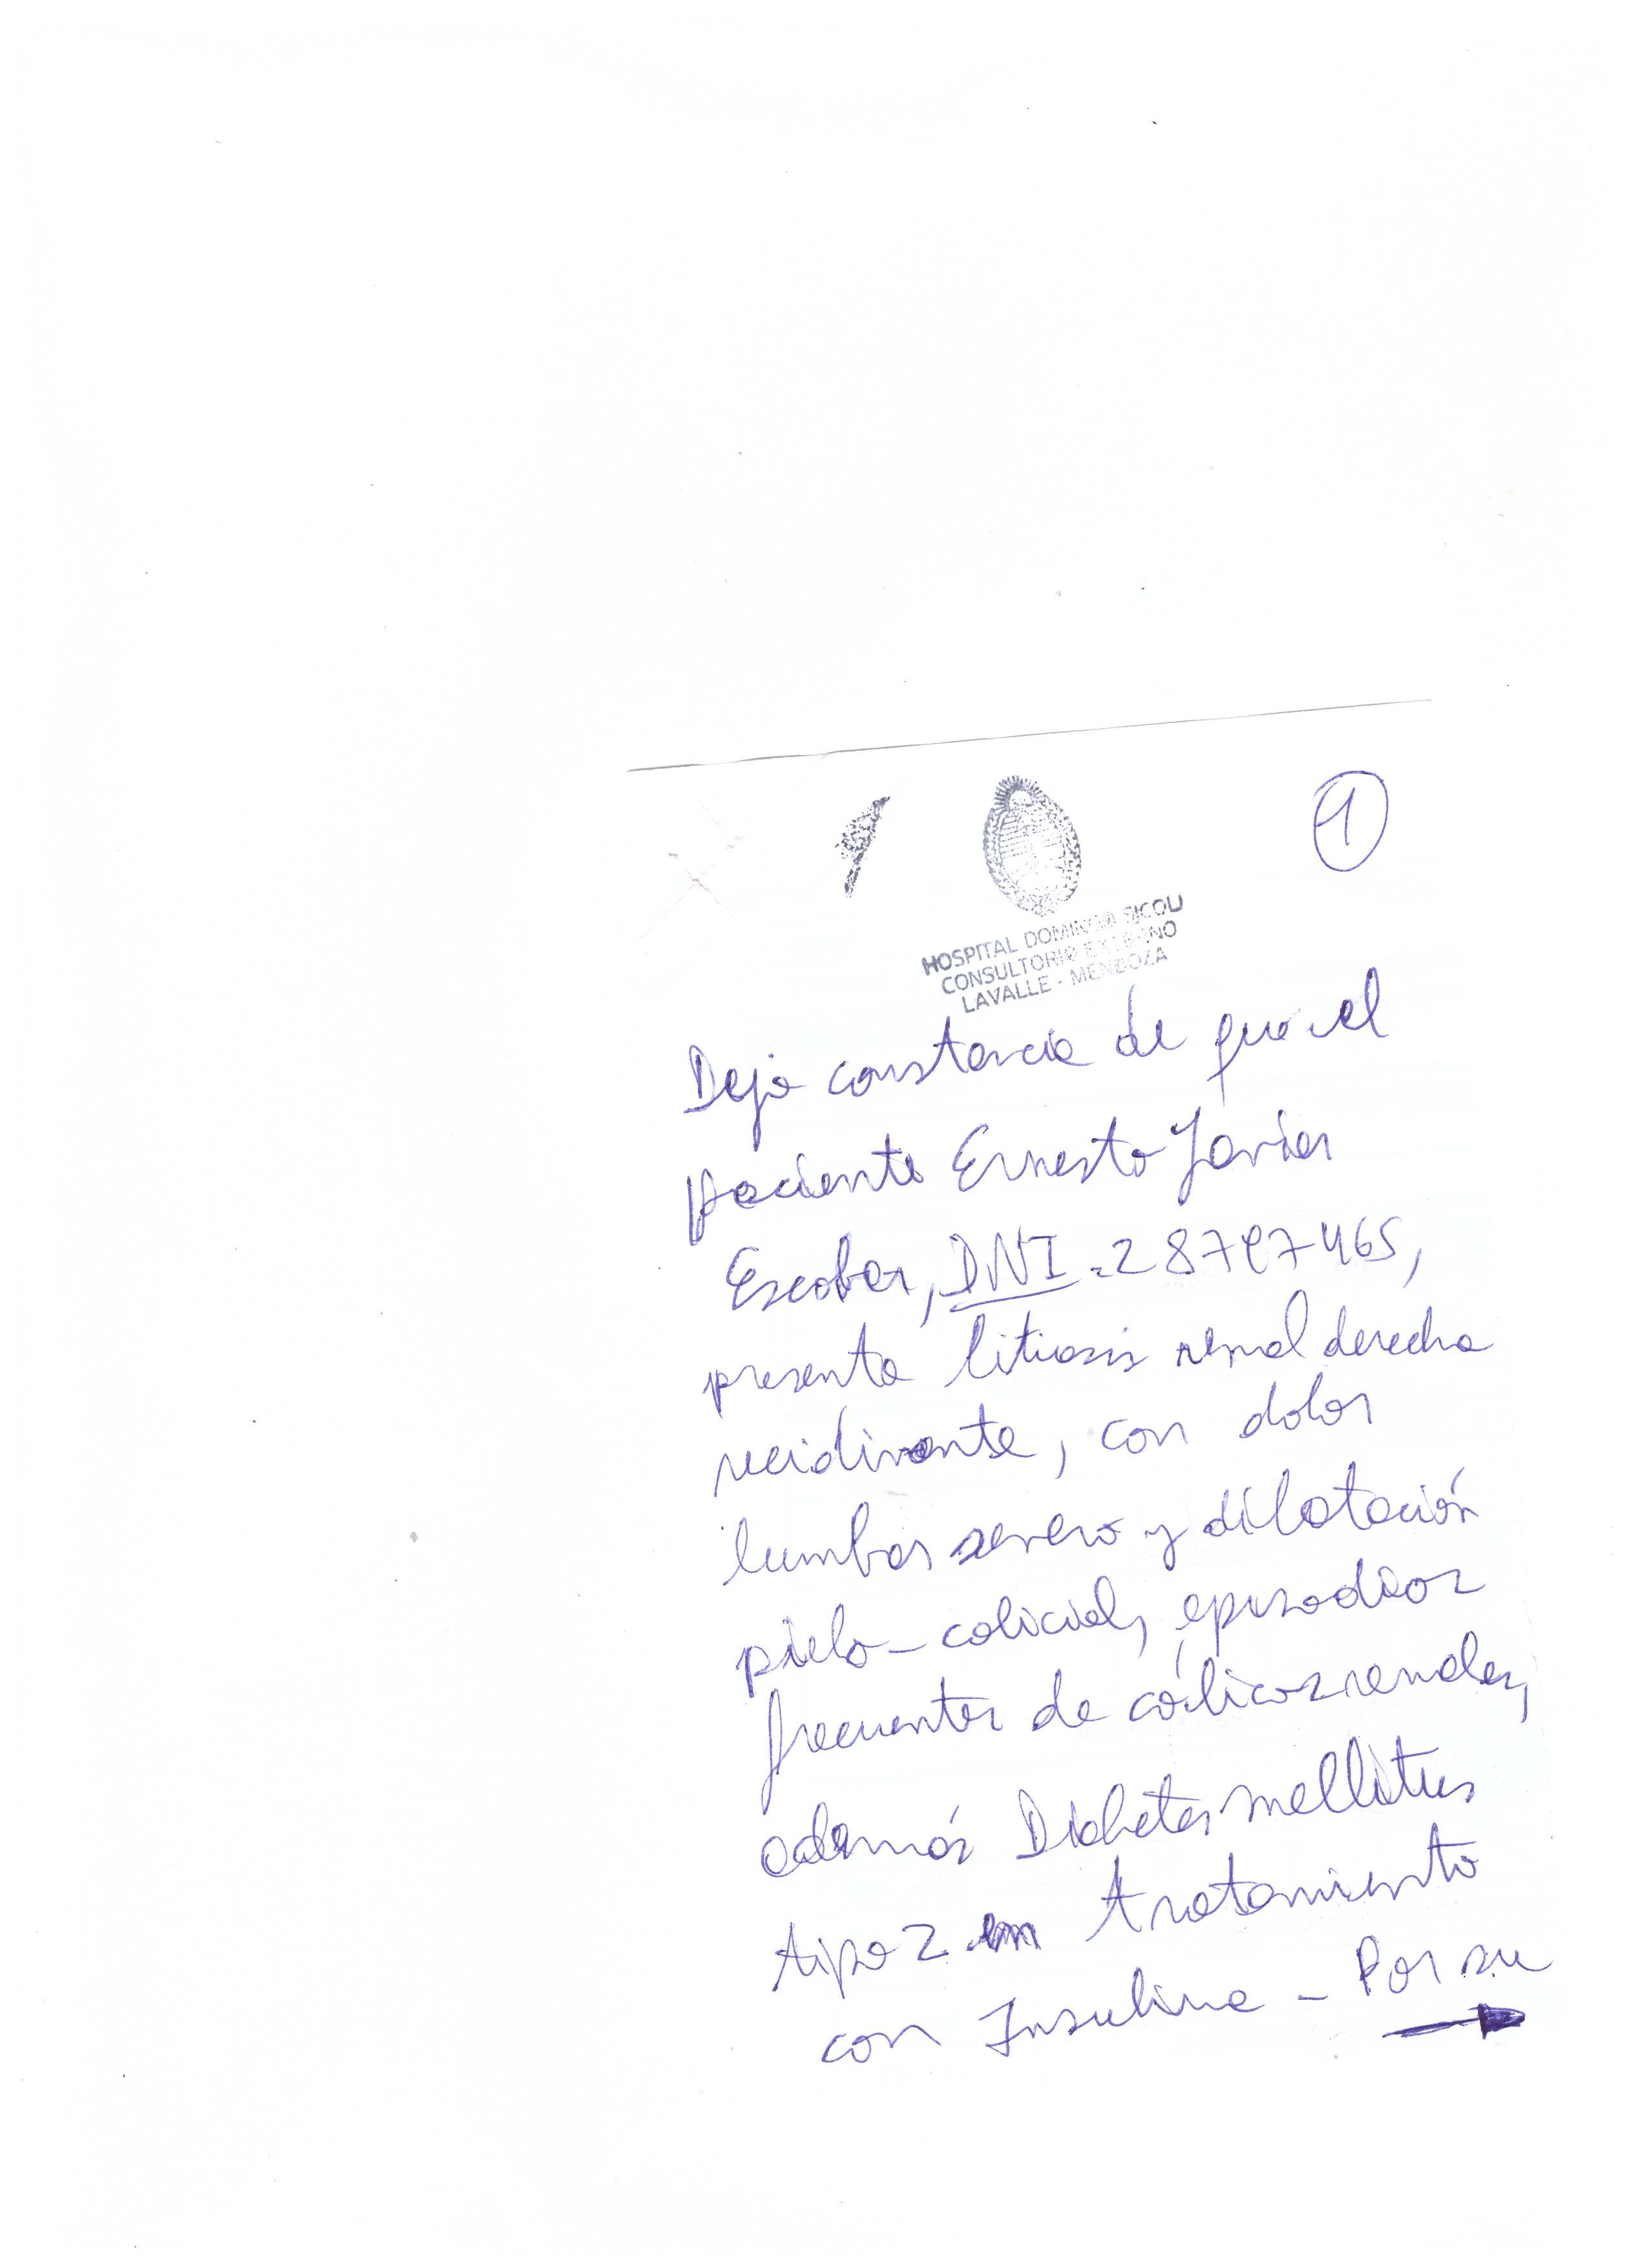 1
HOSPITAL DOMINGO SICOLI
CONSULTORIO EXTERNO
LAVALLE - MENDOZA
Dejo constancia de que el
paciente Ernesto Javier
Escobar, DNI: 28797465,
presenta litiasis renal derecha
recidivante, con dolor
lumbar severo y dilatación
pielo-calicial, episodios
frecuentes de cólicos renales,
además Diabetes mellitus
tipo 2 en tratamiento
con Insulina - Por su